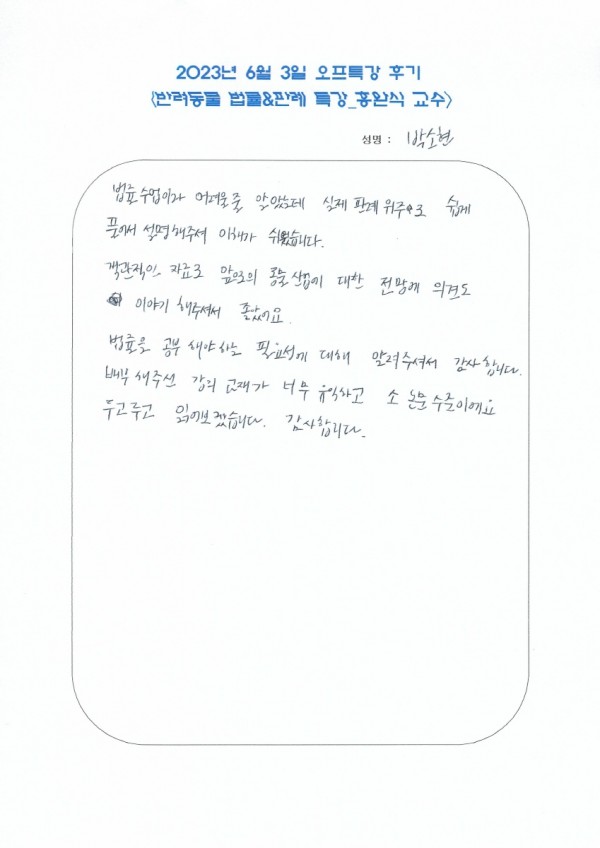 2023년 6월 3일 오프특강 후기
<반려동물 법률&판례 특강_홍완식 교수>
성명 : 박소현
법률수업이라 어려울줄 알았는데 실제 판례위주로 쉽게
풀어서 설명해주셔 이해가 쉬웠습니다.
객관적인 자료로 앞으로의 동물산업에 대한 전망에 의견도
이야기 해주셔서 좋았어요.
법률을 공부해야하는 필요성에 대해 알려주셔서 감사합니다.
배부해주신 강의 교재가 너무 유익하고 소논문수준이에요
두고두고 읽어보겠습니다. 감사합니다.